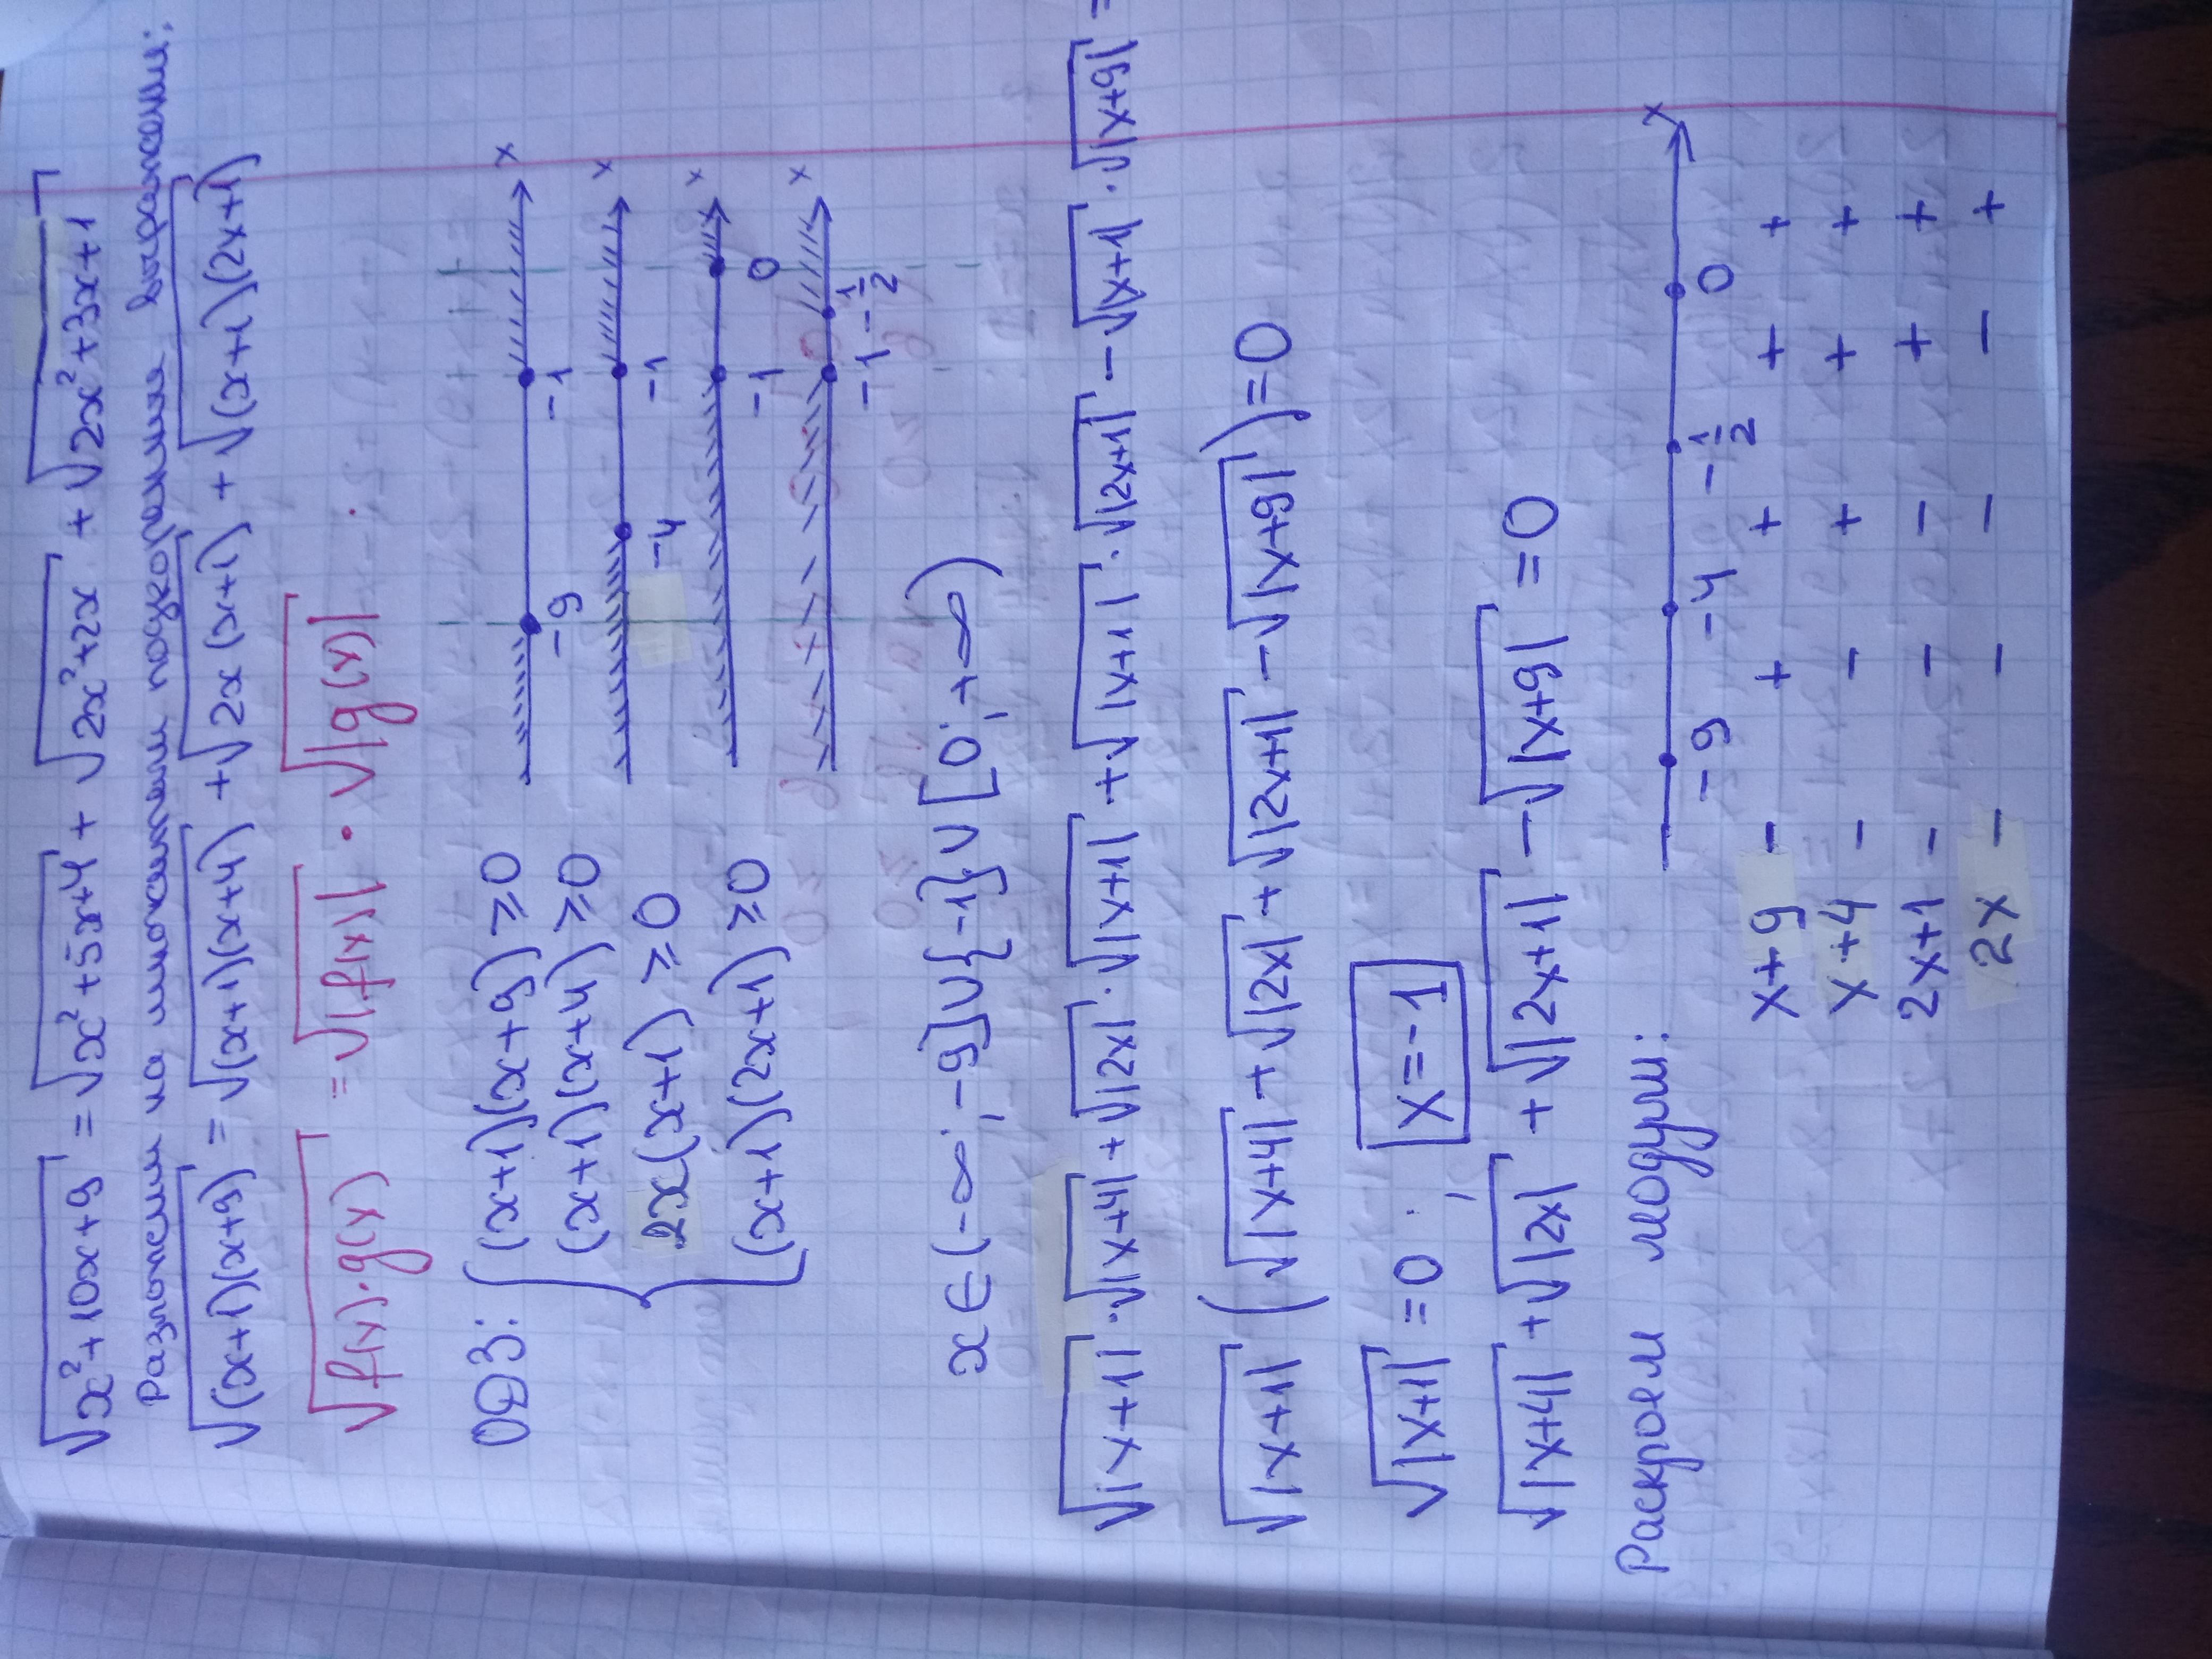 √(x²+10x+9) = √(x²+5x+4) + √(2x²+2x) + √(2x²+3x+1)
Разложим на множители подкоренные выражения:
√((x+1)(x+9)) = √((x+1)(x+4)) + √(2x(x+1)) + √((x+1)(2x+1))
√(f(x)·g(x)) = √|f(x)| · √|g(x)|
ОДЗ: { (x+1)(x+9) ≥ 0 -9 -1 x
(x+1)(x+4) ≥ 0 -4 -1 x
2x(x+1) ≥ 0 -1 0 x
(x+1)(2x+1) ≥ 0 -1 -1/2 x
x ∈ (-∞; -9] ∪ {-1} ∪ [0; +∞)
√|x+1| · √|x+4| + √|2x| · √|x+1| + √|x+1| · √|2x+1| - √|x+1| · √|x+9| =
√|x+1| (√|x+4| + √|2x| + √|2x+1| - √|x+9|) = 0
√|x+1| = 0 ; x = -1
√|x+4| + √|2x| + √|2x+1| - √|x+9| = 0
Раскроем модули:
-9 -4 -1/2 0 x
x+9 - + + + +
x+4 - - + + +
2x+1 - - - + +
2x - - - - +